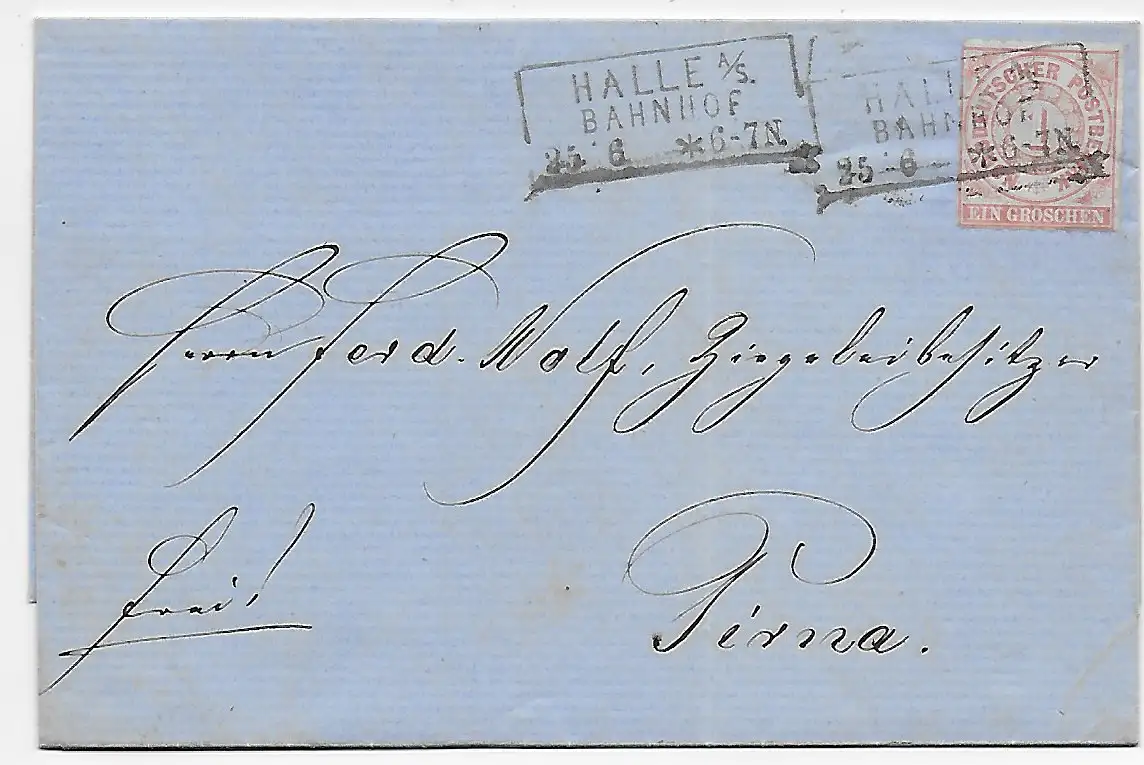 HALLE A/S.
BAHNHOF
25 6 * 6-7N.
HALLE
BAHNHOF
25 6 * 6-7N.
DEUTSCHER POSTBEZIRK
1
EIN GROSCHEN
Herrn Ferd. Wolf, Ziegeleibesitzer
frei!
Pirna.